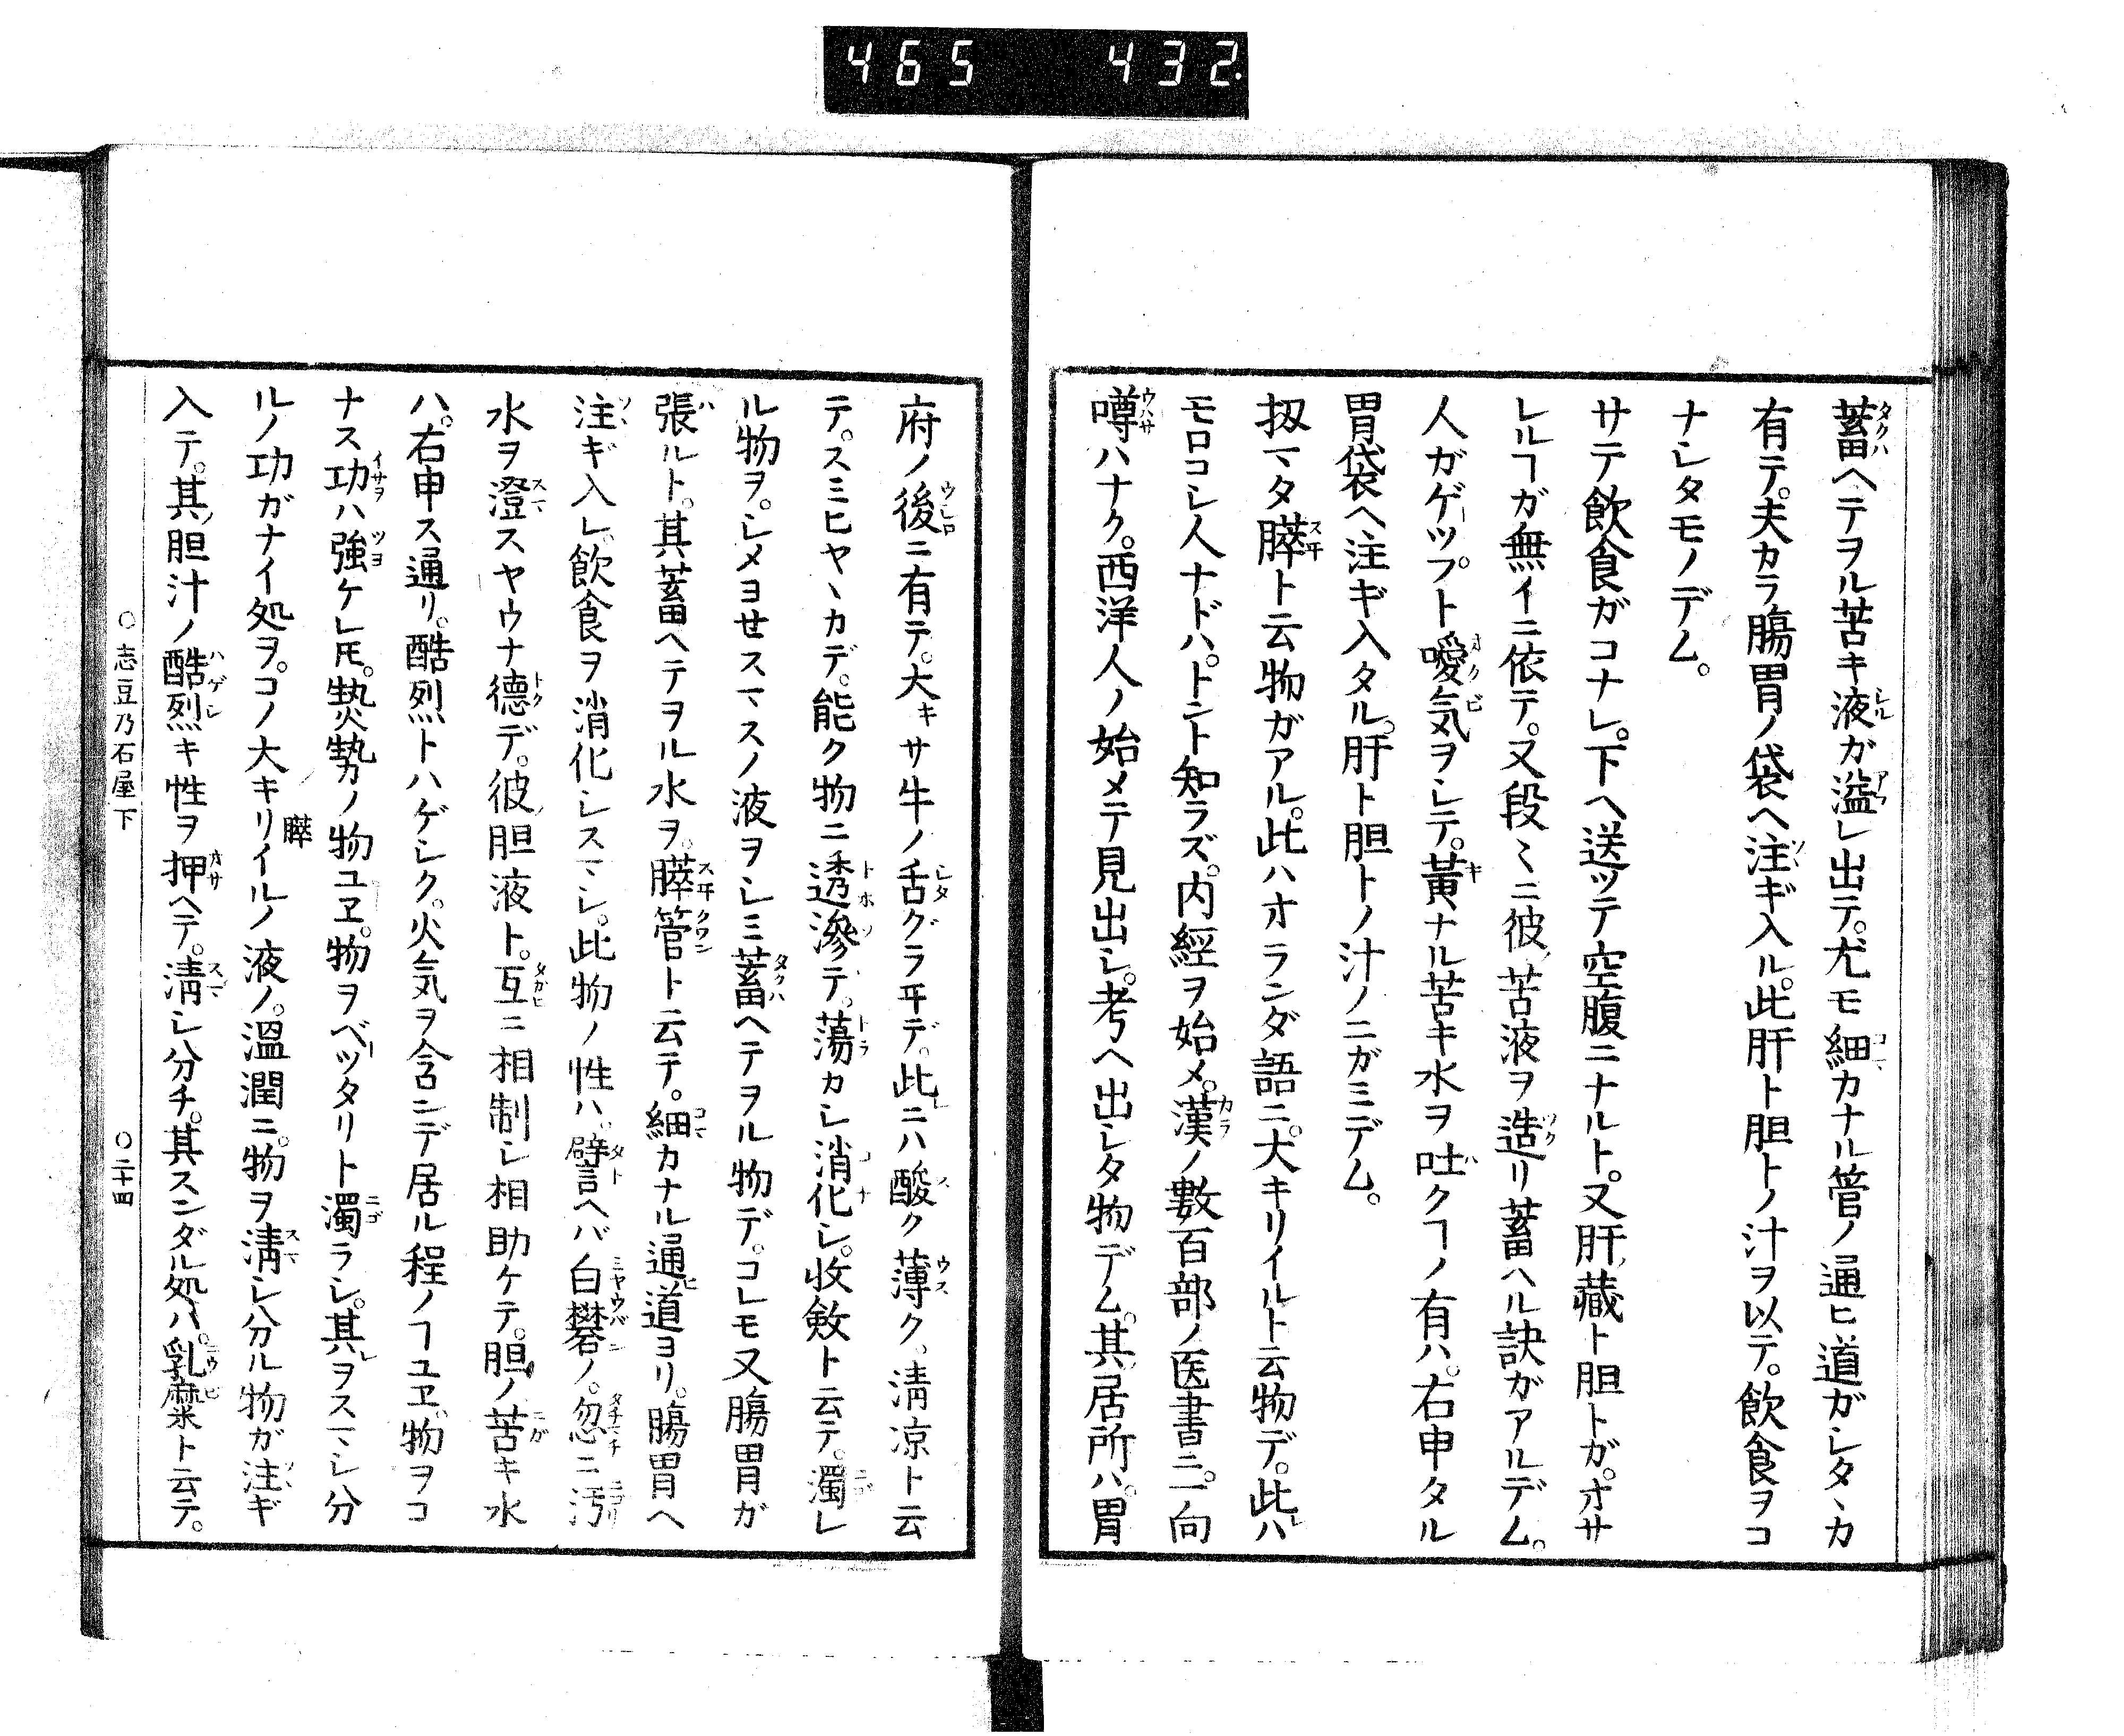 465 432
蓄ヘテヲル苦キ液ガ溢レ出テ。尤モ細カナル管ノ通ヒ道ガシタヽカ
有テ。夫カラ腸胃ノ袋ヘ注ギ入ル。此肝ト胆トノ汁ヲ以テ。飲食ヲコ
ナシタモノデム。
サテ飲食ガコナレ。下ヘ送ッテ空腹ニナルト。又肝ノ藏ト胆トガ。オサ
レルヿガ無イニ依テ。又段〻ニ彼ノ苦液ヲ造リ蓄ヘル訣ガアルデム。
人ガゲーップト噯気ヲシテ。黃ナル苦キ水ヲ吐クヿノ有ハ。右申タル
胃袋ヘ注ギ入タル。肝ト胆トノ汁ノニガミデム。
扨マタ膵ト云物ガアル。此ハオランダ語ニ。大キリイルト云物デ。此レハ
モロコシ人ナドハ。トント知ラズ。内經ヲ始メ。漢ノ數百部ノ医書ニ。一向
噂ハナク。西洋人ノ始メテ見出シ。考ヘ出シタ物デム。其ノ居所ハ。胃
府ノ後ニ有テ。大キサ牛ノ舌グラヰデ。此レニハ酸ク薄ク。淸凉ト云
テ。スミヒヤヽカデ。能ク物ニ透滲テ。蕩カシ消化シ。收斂ト云テ。濁レ
ル物ヲ。シメヨせスマスノ液ヲシミ蓄ヘテヲル物デ。コレモ又腸胃ガ
張ルト。其蓄ヘテヲル水ヲ。膵管ト云テ。細カナル通道ヨリ。腸胃ヘ
注ギ入レ。飲食ヲ消化シスマシ。此物ノ性ハ。譬言ヘバ白礬ノ。忽ニ汚
水ヲ澄スヤウナ德デ。彼ノ胆液ト。互ニ相制シ相助ケテ。胆ノ苦キ水
ハ。右申ス通リ。酷烈トハゲシク。火気ヲ含ンデ居ル程ノヿユヱ。物ヲコ
ナス功ハ強ケレ𪜈。𤍠勢ノ物ユヱ。物ヲベーッタリト濁ラシ。其レヲスマシ分
ルノ功ガナイ処ヲ。コノ大キリイルノ液ノ。溫潤ニ。物ヲ淸シ分ル物ガ注ギ
膵
入テ。其ノ胆汁ノ酷烈キ性ヲ押ヘテ。淸シ分チ。其スンダル処ハ。乳糜ト云テ。
○志豆乃石屋下 ○二十四